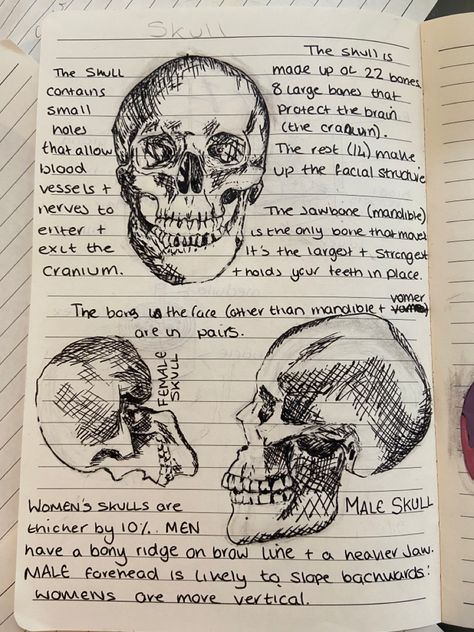 Skull
The Skull
contains
small
holes
that allow
blood
vessels +
nerves to
enter +
exit the
cranium.
The skull is
made up of 22 bones
8 large bones that
protect the brain
(the cranium).
The rest (14) make
up the facial structure
The Jawbone (mandible)
is the only bone that moves
it's the largest + strongest
+ holds your teeth in place.
The bons in the face (other than mandible + vomer)
are in pairs.
FEMALE
SKULL
MALE SKULL
WOMEN'S SKULLS are
thicker by 10%. MEN
have a bony ridge on brow line + a heavier Jaw.
MALE forehead is likely to slope backwards:
WOMENS are more vertical.